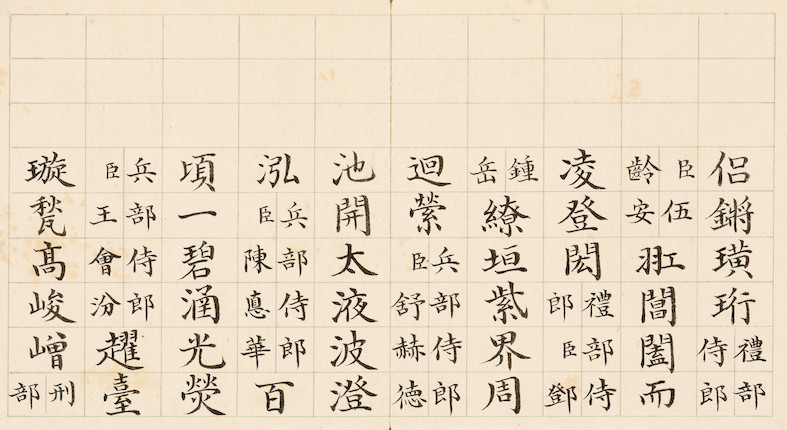 侶鏘璜珩禮部侍郎
臣伍齡安羾閶闔而
凌登閎禮部侍郎臣鄧
鍾岳繚垣紫界周
迴縈兵部侍郎臣舒赫德
池開太液波澄
泓兵部侍郎臣陳悳華百
頃一碧涵光熒
兵部侍郎臣王會汾趯臺
璇甃髙峻嶒刑部